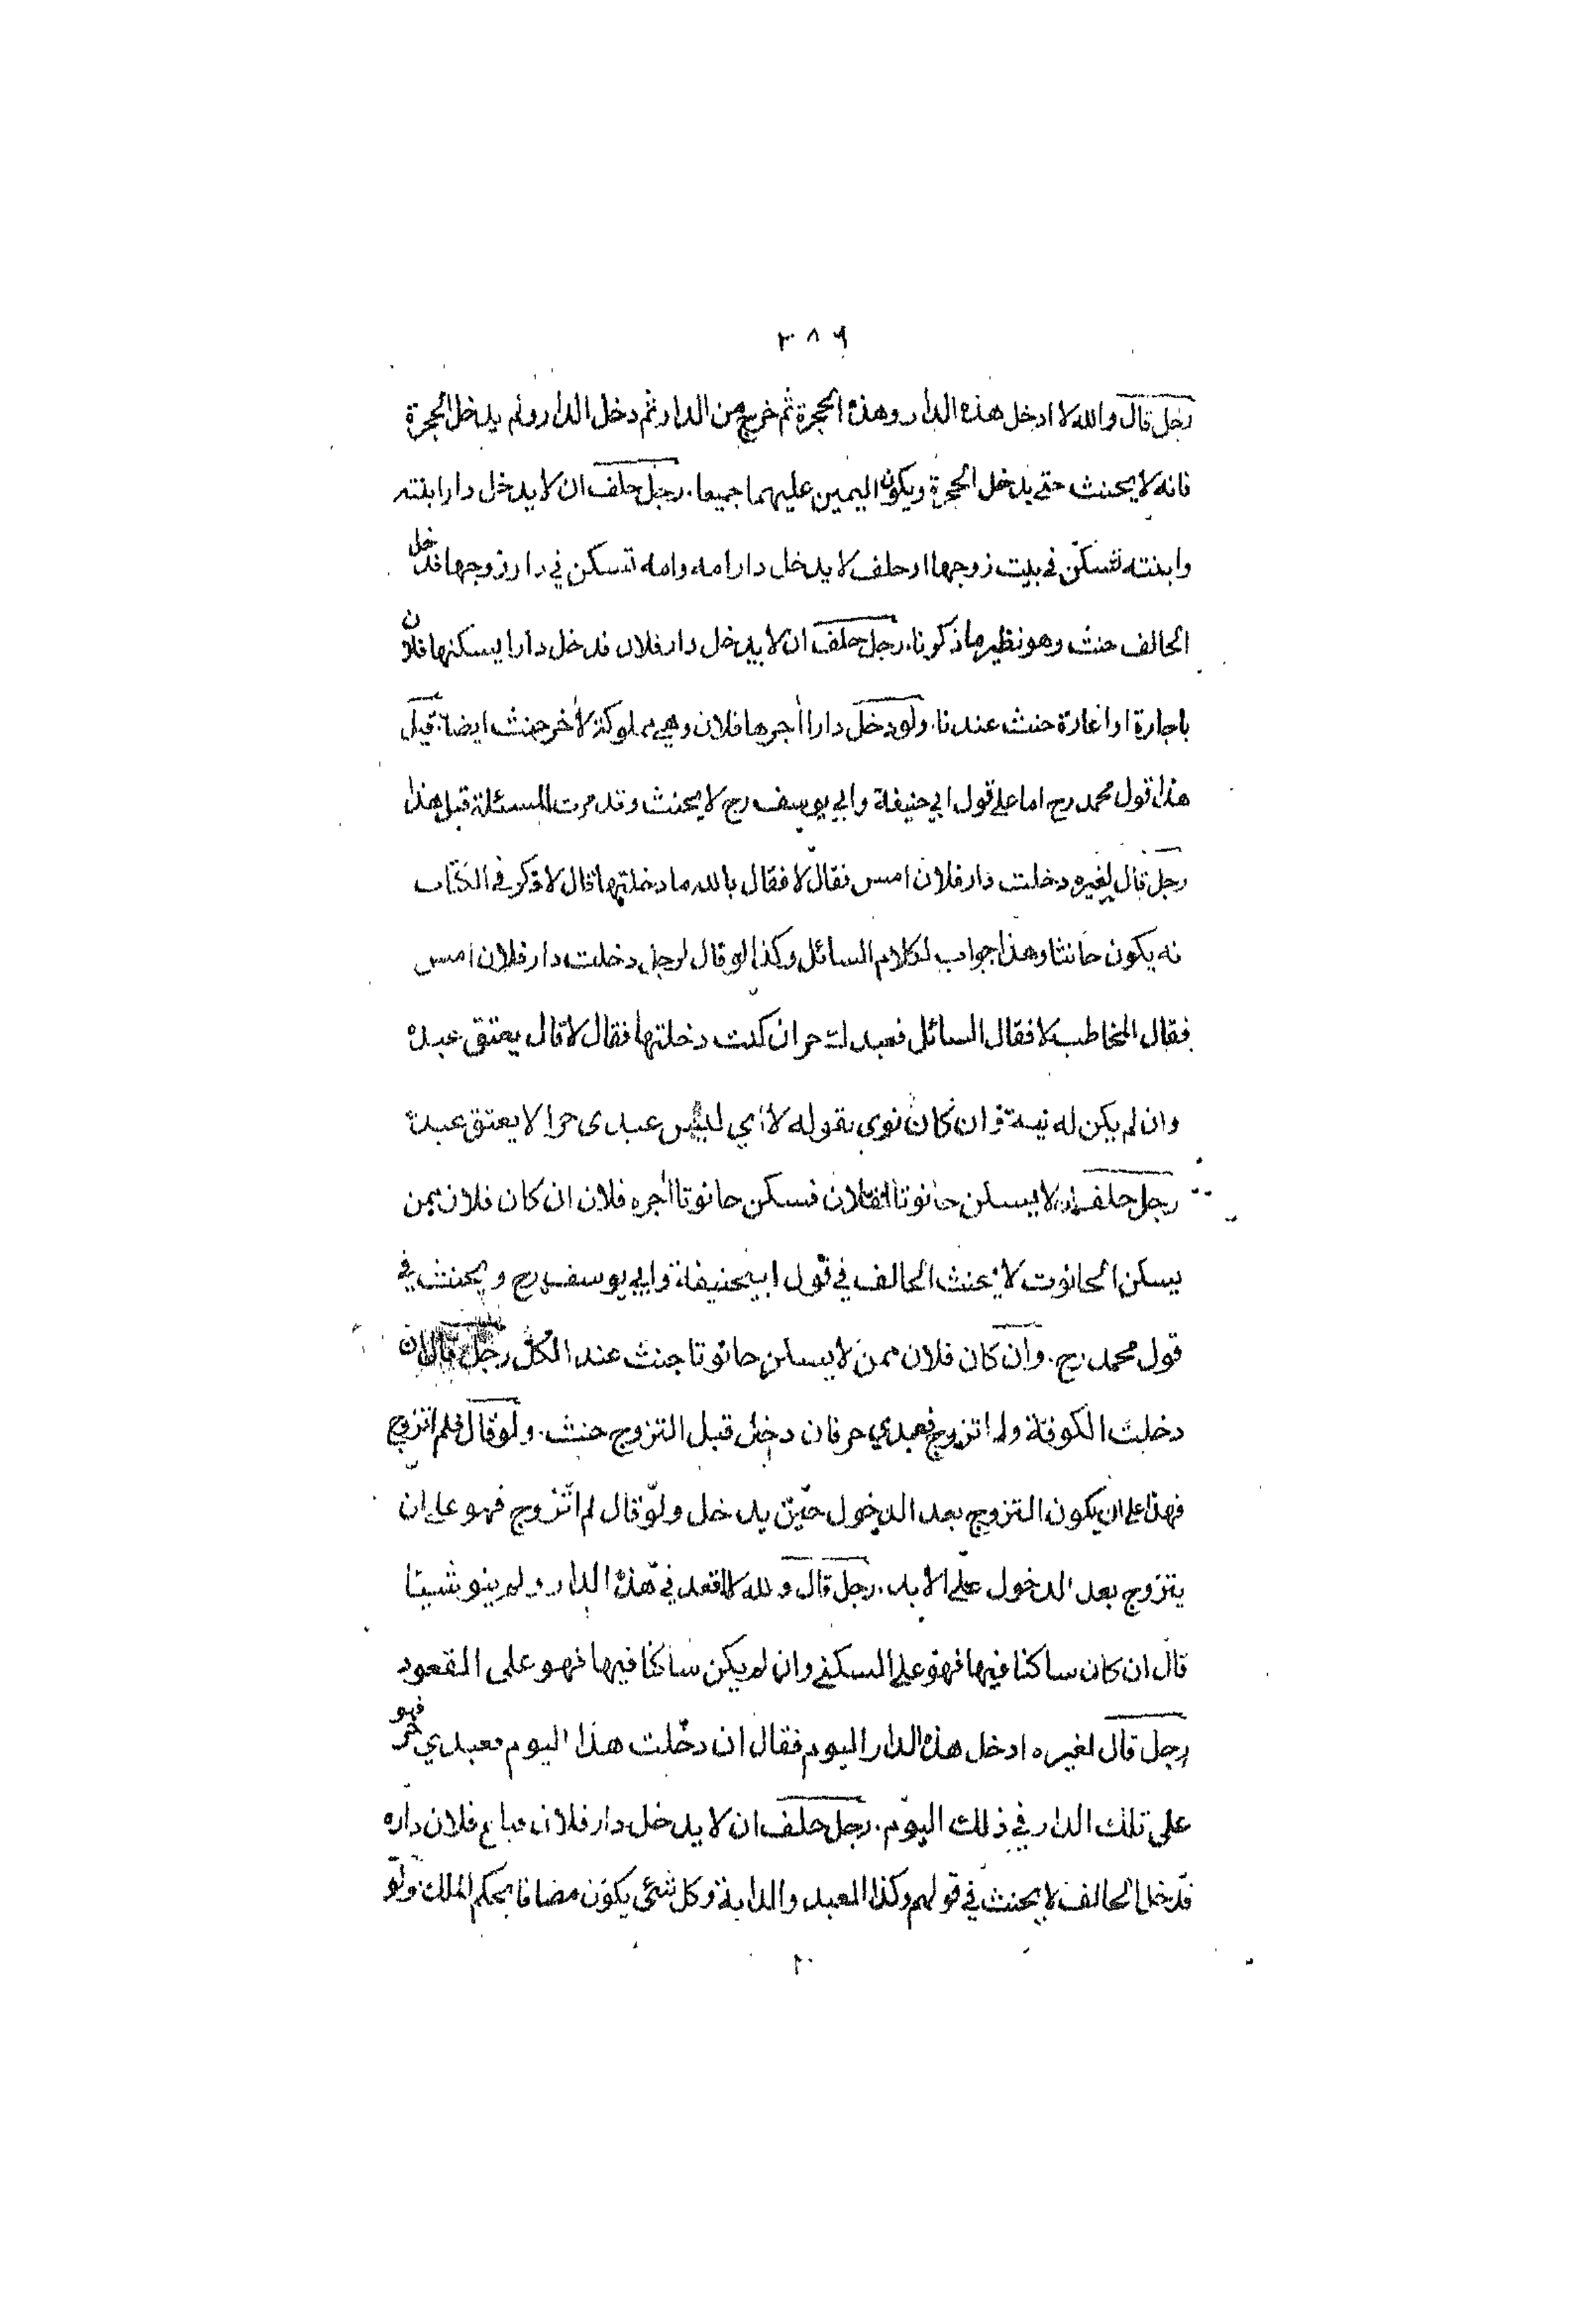 ٢٨٩
رجل قال والله لا ادخل هذه الدار وهذه الحجرة ثم خرج من الدار ثم دخل الدار ولم يدخل الحجرة
فانه لا يحنث حتى يدخل الحجرة ويكون اليمين عليهما جميعا. رجل حلف ان لا يدخل دار ابنته
وابنته تسكن في بيت زوجها او حلف لا يدخل دار امه وامه تسكن في دار زوجها فدخل
الحالف حنث وهو نظير ما ذكرنا. رجل حلف ان لا يدخل دار فلان فدخل دارا يسكنها فلان
باجارة او اعارة حنث عندنا. ولو دخل دارا اجرها فلان وهي مملوكة لاخر حنث ايضا. قيل
هذا قول محمد رح اما على قول ابي حنيفة وابي يوسف رح لا يحنث وقد مرت المسئلة قبل هذا
رجل قال لغيره دخلت دار فلان امس فقال لا فقال بالله ما دخلتها قال لا ذكر في الكتاب
نه يكون حانثا وهذا جواب لكلام السائل وكذا لو قال لرجل دخلت دار فلان امس
فقال المخاطب لا فقال السائل فعبدك حر ان كنت دخلتها فقال لا قال يعتق عبده
وان لم يكن له نية وان كان نوى بقوله لا اي ليس عبدى حرا لا يعتق عبده
رجل حلف ان لا يسكن حانوتا لفلان فسكن حانوتا اجره فلان ان كان فلان ممن
يسكن الحانوت لا يحنث الحالف في قول ابيحنيفة وابي يوسف رح ويحنث في
قول محمد رح. وان كان فلان ممن لا يسكن حانوتا حنث عند الكل رجل قال ان
دخلت الكوفة ولم اتزوج فعبدي حر فان دخل قبل التزوج حنث. ولو قال فلم اتزوج
فهذا على ان يكون التزوج بعد الدخول حين يدخل ولو قال لم اتزوج فهو على ان
يتزوج بعد الدخول على الابد. رجل قال والله لا اقعد في هذه الدار ولم ينو شيئا
قال ان كان ساكنا فيها فهو على السكنى وان لم يكن ساكنا فيها فهو على القعود
رجل قال لغيره ادخل هذه الدار اليوم فقال ان دخلت هذا اليوم فعبدي حر فهو
على تلك الدار في ذلك اليوم. رجل حلف ان لا يدخل دار فلان فباع فلان داره
فدخل الحالف لا يحنث في قولهم وكذا العبد والدابة وكل شئ يكون مضافا بحكم الملك ولو